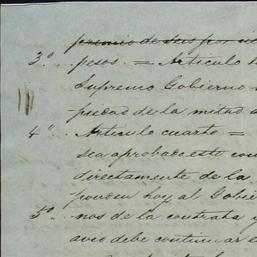 premio de seis por cie
3º. pesos = Articulo t
Supremo Gobierno
piedad de la mitad d
4º. Articulo cuarto =
sea aprobado este con
directamente de la
ponden hoy al Gobie
5º. nos de la contrata y
aveo debe continuar e